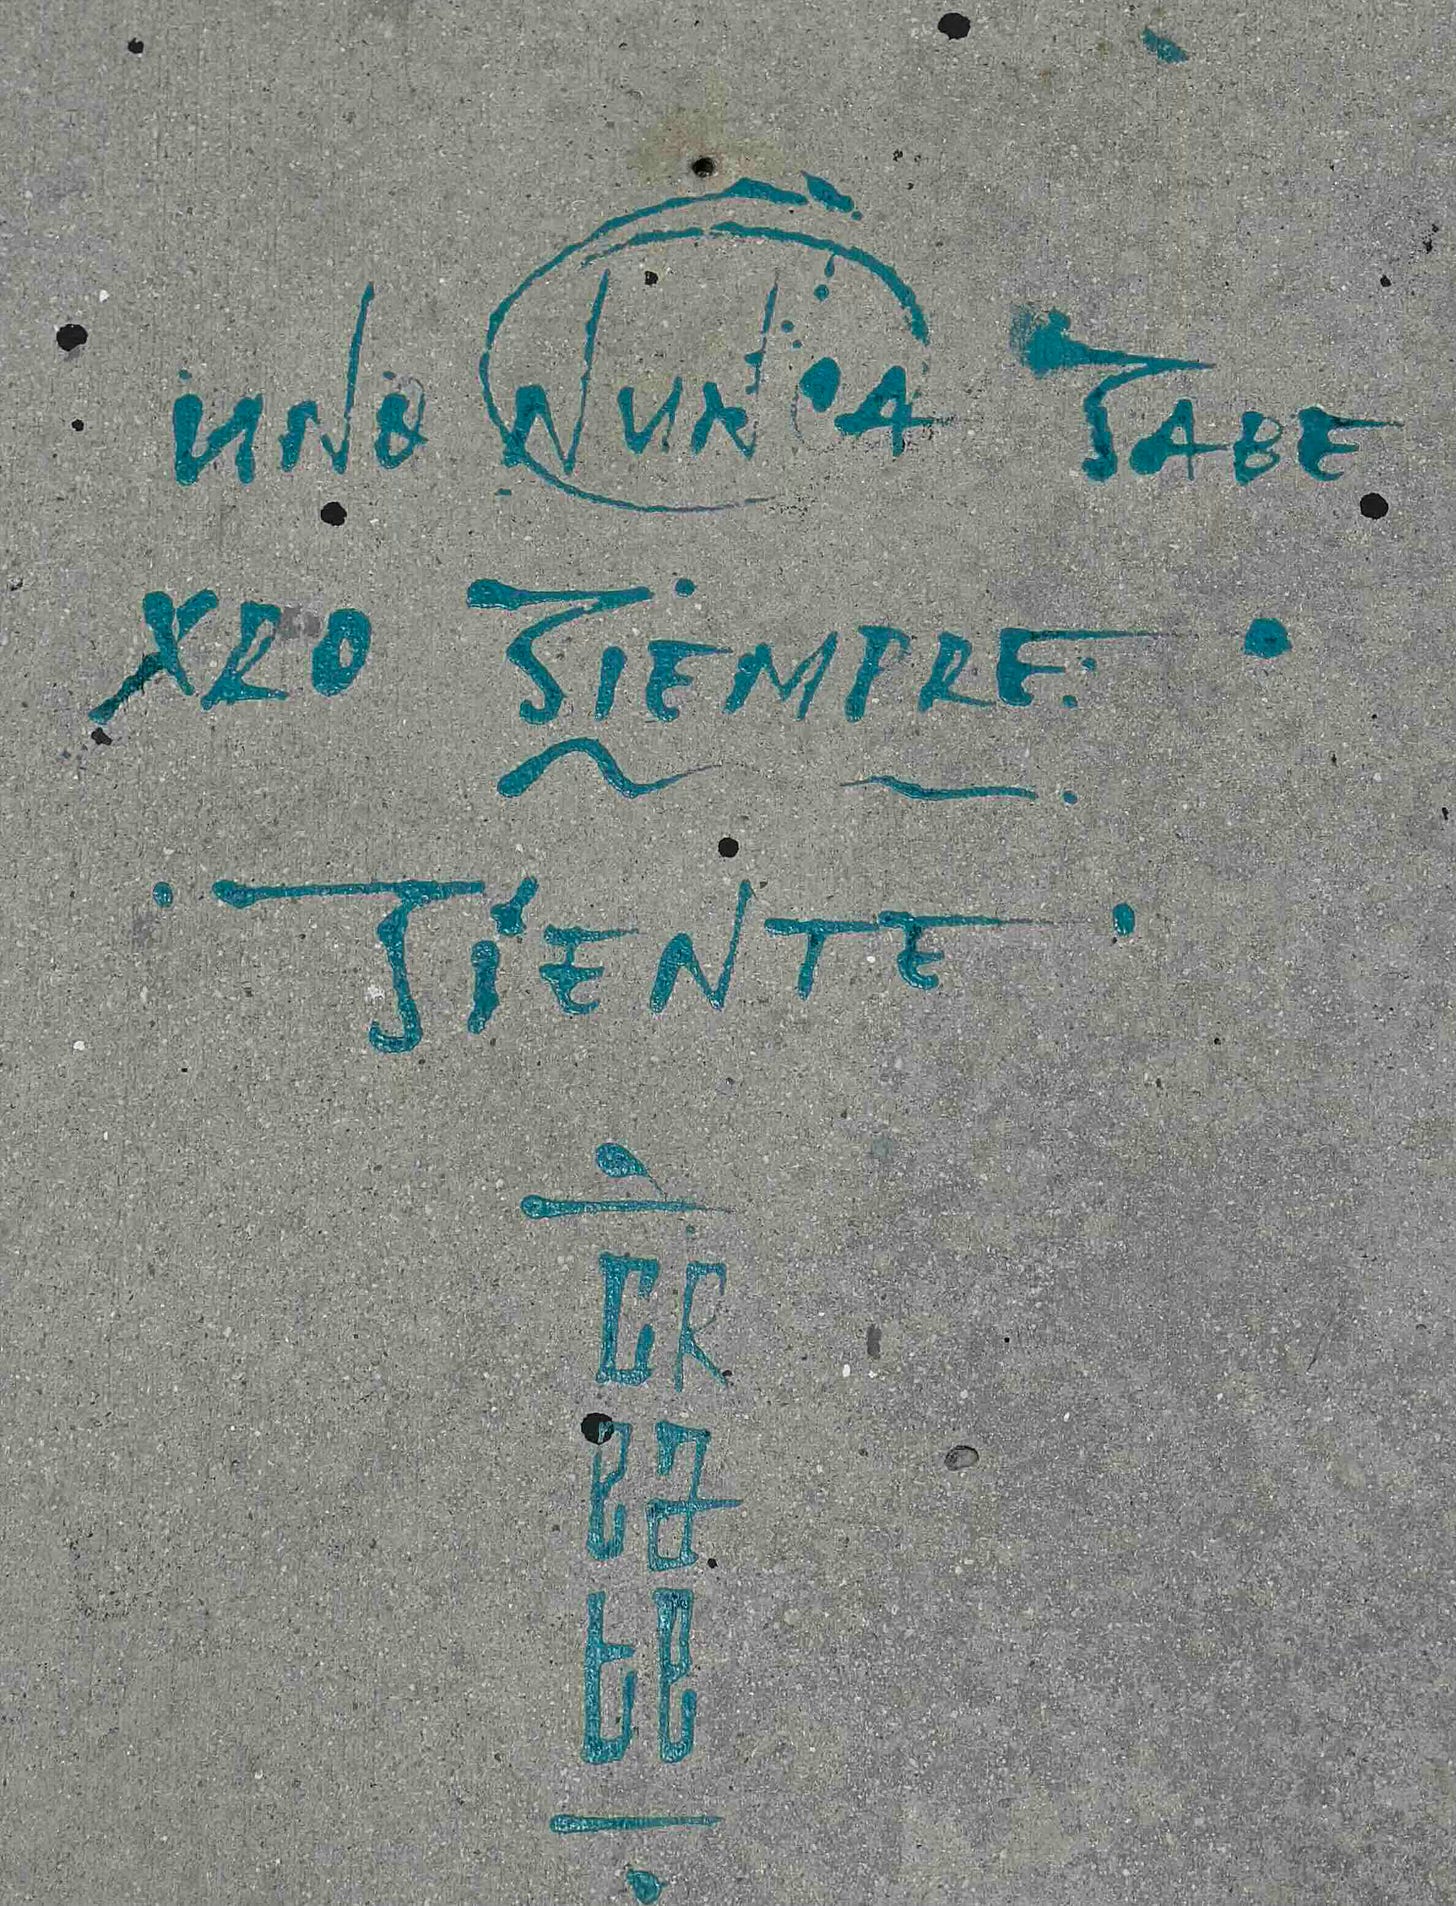 UNO NUNCA SABE
XRO SIEMPRE
SIENTE
CR
ea
te